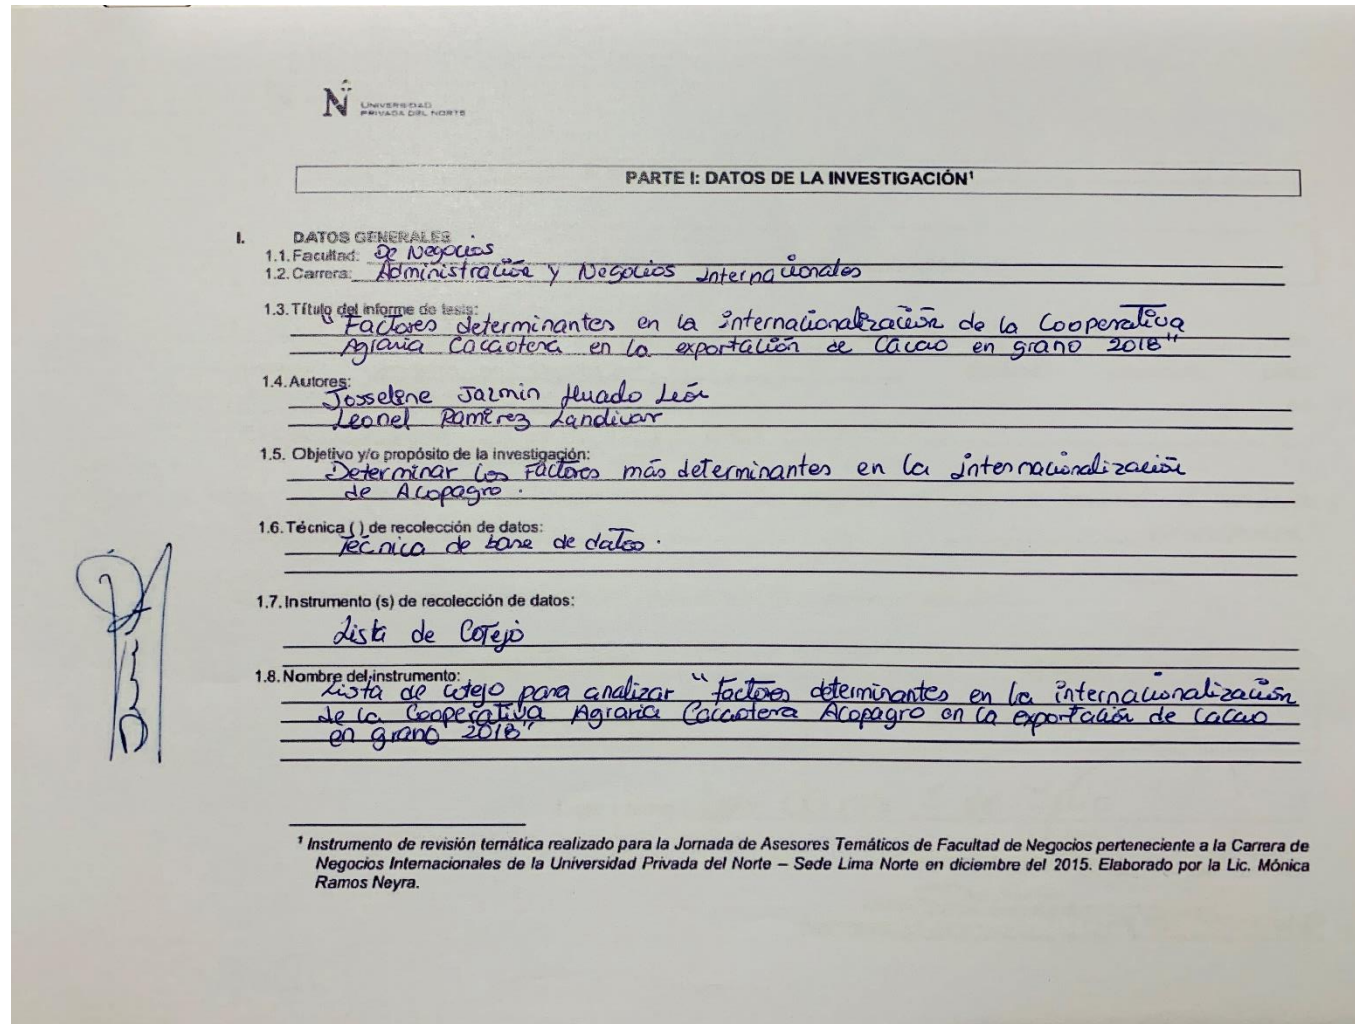 N UNIVERSIDAD
PRIVADA DEL NORTE
PARTE I: DATOS DE LA INVESTIGACIÓN¹
I. DATOS GENERALES
1.1. Facultad: De Negocios
1.2. Carrera: Administración y Negocios Internacionales
1.3. Título del informe de tesis:
"Factores determinantes en la internacionalización de la Cooperativa
Agraria Cacaotera en la exportación de Cacao en grano 2018"
1.4. Autores:
Josselene Jazmin León
Leonel Ramírez Landivar
1.5. Objetivo y/o propósito de la investigación:
Determinar los Factores más determinantes en la internacionalización
de Acopagro.
1.6. Técnica ( ) de recolección de datos:
Técnica de base de datos.
1.7. Instrumento (s) de recolección de datos:
Lista de Cotejo
1.8. Nombre del instrumento:
Lista de cotejo para analizar "Factores determinantes en la internacionalización
de la Cooperativa Agraria Cacaotera Acopagro en la exportación de cacao
en grano 2018"
¹ Instrumento de revisión temática realizado para la Jornada de Asesores Temáticos de Facultad de Negocios perteneciente a la Carrera de
Negocios Internacionales de la Universidad Privada del Norte – Sede Lima Norte en diciembre del 2015. Elaborado por la Lic. Mónica
Ramos Neyra.